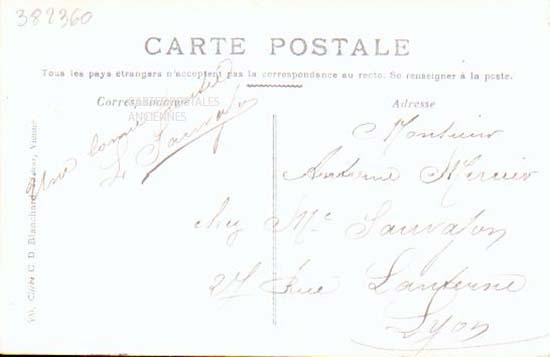 382360
CARTE POSTALE
Tous les pays étrangers n'acceptent pas la correspondance au recto. Se renseigner à la poste.
Correspondance
CARTES POSTALES
ANCIENNES
Adresse
Une bonne
L Sauvajon
Monsieur
Antoine Mercier
chez Mr Sauvajon
Rue Lanterne
Lyon
Clichés C. D. Blanchard, Vienne